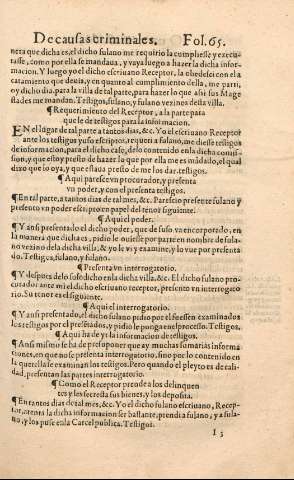 De causas criminales. Fol. 65.
nera que dicha es, el dicho fulano me requirio la cumpliesse y executasse
tasse, como por ella se mandaua, y vaya luego a hazer la dicha infor-
macion. Y luego yo el dicho escriuano Receptor, la obedesci con el a
catamiento que deuia, y en quanto al cumplimiento della, me parti,
oy dicho dia, para la villa de tal parte, para hazer lo que assi sus Mage
stades me mandan. Testigos, fulano, y fulano vezinos desta villa.
¶ Requerimiento del Receptor, a la parte para
que le de testigos para la informacion.
EN el lugar de tal parte a tantos dias, &c. Yo el escriuano Receptor
ante los testigos yuso escriptos, requeri a fulano, me diesse testigos
de informacion, para el dicho caso, de lo contenido en la dicha comis-
sion, y que estoy presto de hazer lo que por ella me es mãdado, el qual
dixo que lo oya, y que estaua presto de me los dar. testigos.
¶ Aqui paresce vn procurador, y presenta
vn poder, y con el presenta testigos.
¶ En tal parte, a tantos dias de tal mes, &c. Parescio presente fulano y
presento vn poder escripto en papel del tenor siguiente.
¶ Aqui el poder.
¶ Y ansi presentado el dicho poder, que de suso va encorporado, en
la manera que dicha es, pidio le ouiesse por parte en nombre de fula-
no vezino dela dicha villa, & yo le vi y examine, y lo vue por presenta
do. Testigos, fulano, y fulano.
¶ Presenta vn interrogatorio.
¶ Y despues delo suso dicho en la dicha villa, &c. El dicho fulano pro
curador ante mi el dicho escriuano receptor, presento vn interrogato
rio. Su tenor es el siguiente.
¶ Aqui el interrogatorio.
¶ Y ansi presentado, el dicho fulano pidio por el fuessen examinados
los testigos por el presentados, y pidio le ponga enel processo. Testigos.
¶ Aqui ha de yr la informacion de testigos.
¶ Ansi mismo se ha de presuponer que ay muchas sumarias informa
ciones, en que no se presenta interrogatorio, sino por lo contenido en
la querella se examinan los testigos. Pero quando el pleyto es de cali-
dad, presentan las partes interrogatorio.
¶ Como el Receptor prende a los delinquen
tes y les secresta sus bienes, y los deposita.
¶ En tantos dias de tal mes, &c. Yo el dicho fulano escriuano, Recep-
tor, atenta la dicha informacion ser bastante, prendi a fulano, y a fula-
no, y los puse en la Carcel publica. Testigos.
I 5